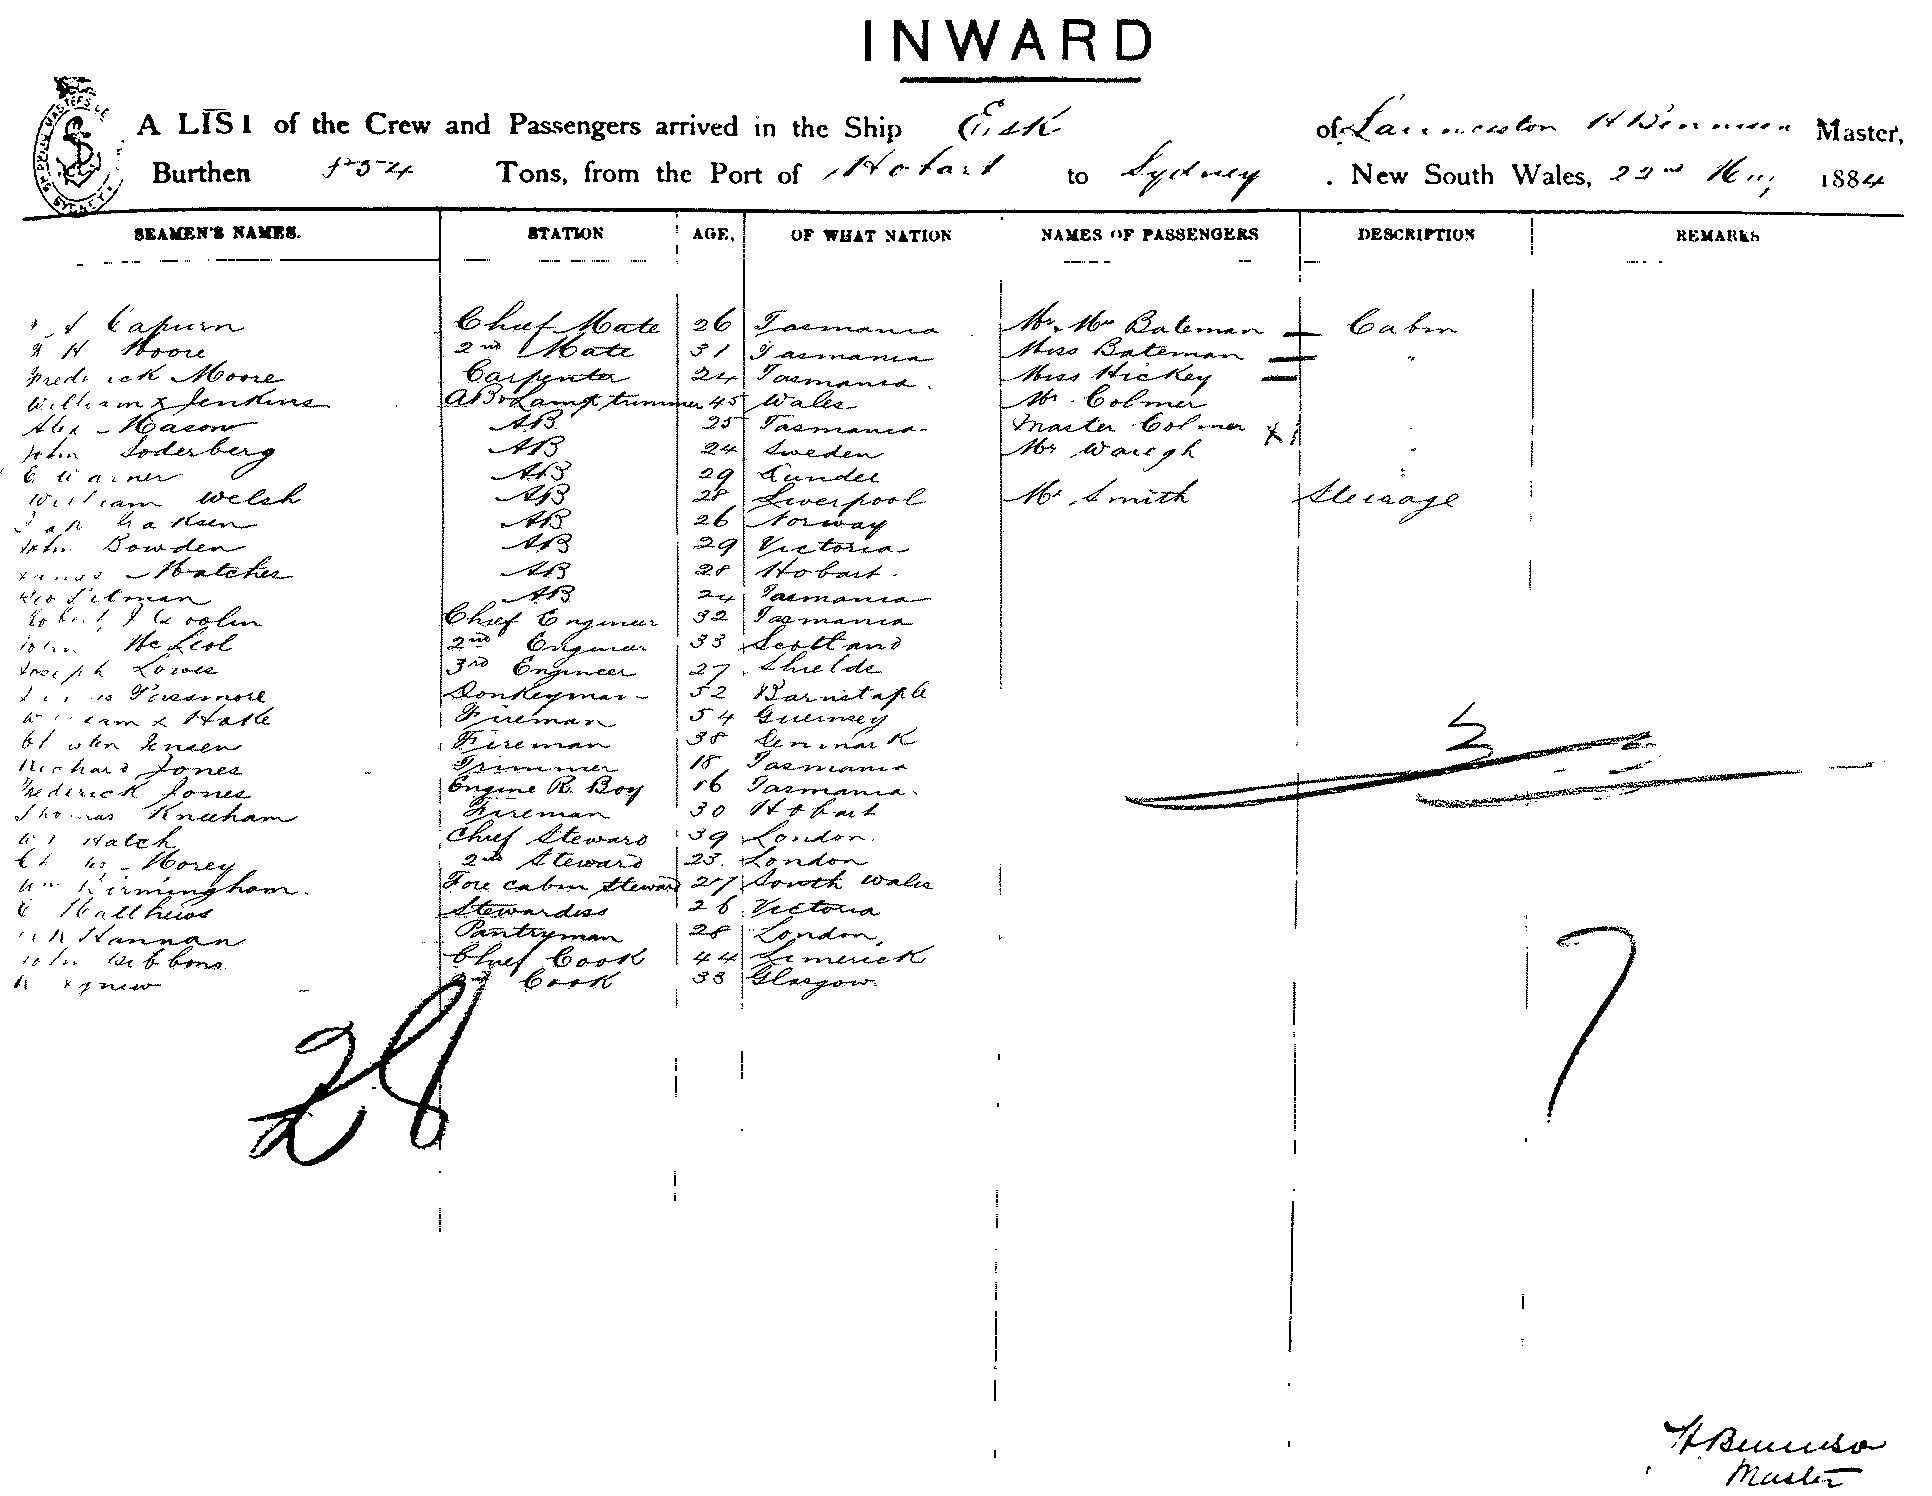 INWARD
A LIST of the Crew and Passengers arrived in the Ship Esk of Launceston H Bennison Master,
Burthen Tons, from the Port of Hobart to Sydney . New South Wales, 22nd 1884
SEAMEN'S NAMES. STATION AGE, OF WHAT NATION NAMES OF PASSENGERS DESCRIPTION REMARKS
Capurn Chief Mate 26 Tasmania Mr. Mrs Bateman Cabin
H Moore 2nd Mate 31 Tasmania Miss Bateman "
Frederick Moore Carpenter 24 Tasmania. Miss Hickey
William x Jenkins AB & Lamp trimmer 45 Wales Mr. Colmer
Alex Mason AB 25 Tasmania. Master Colmer x 1
John Soderberg AB 24 Sweden Mr
Warner AB 29 Dundee
William Welsh AB 28 Liverpool Mr Smith Steerage
AB 26 Norway
John Bowden AB 29 Victoria
Hatcher AB 28 Hobart.
Geo Pitman AB 24 Tasmania
Robert J Chief Engineer 32 Tasmania
John McLeod 2nd Engineer 33 Scotland
Joseph Lowes 3rd Engineer 27 Shields
Passmore Donkeyman 52 Barnstaple
William x Hake Fireman 54 Guernsey
Jensen Fireman 38 Denmark
Richard Jones Trimmer 18 Tasmania
Frederick Jones Engine R. Boy 16 Tasmania.
Thomas Kneeham Fireman 30 Hobart
Hatch Chief Steward 39 London.
Morey 2nd Steward 23. London
Wm Birmingham. Fore cabin steward 27 South Wales
Matthews Stewardess 26 Victoria
Hannan Pantryman 28 London,
John Gibbons Chief Cook 44 Limerick
Agnew 2nd Cook 33 Glasgow.
28
7
H Bennison
Master